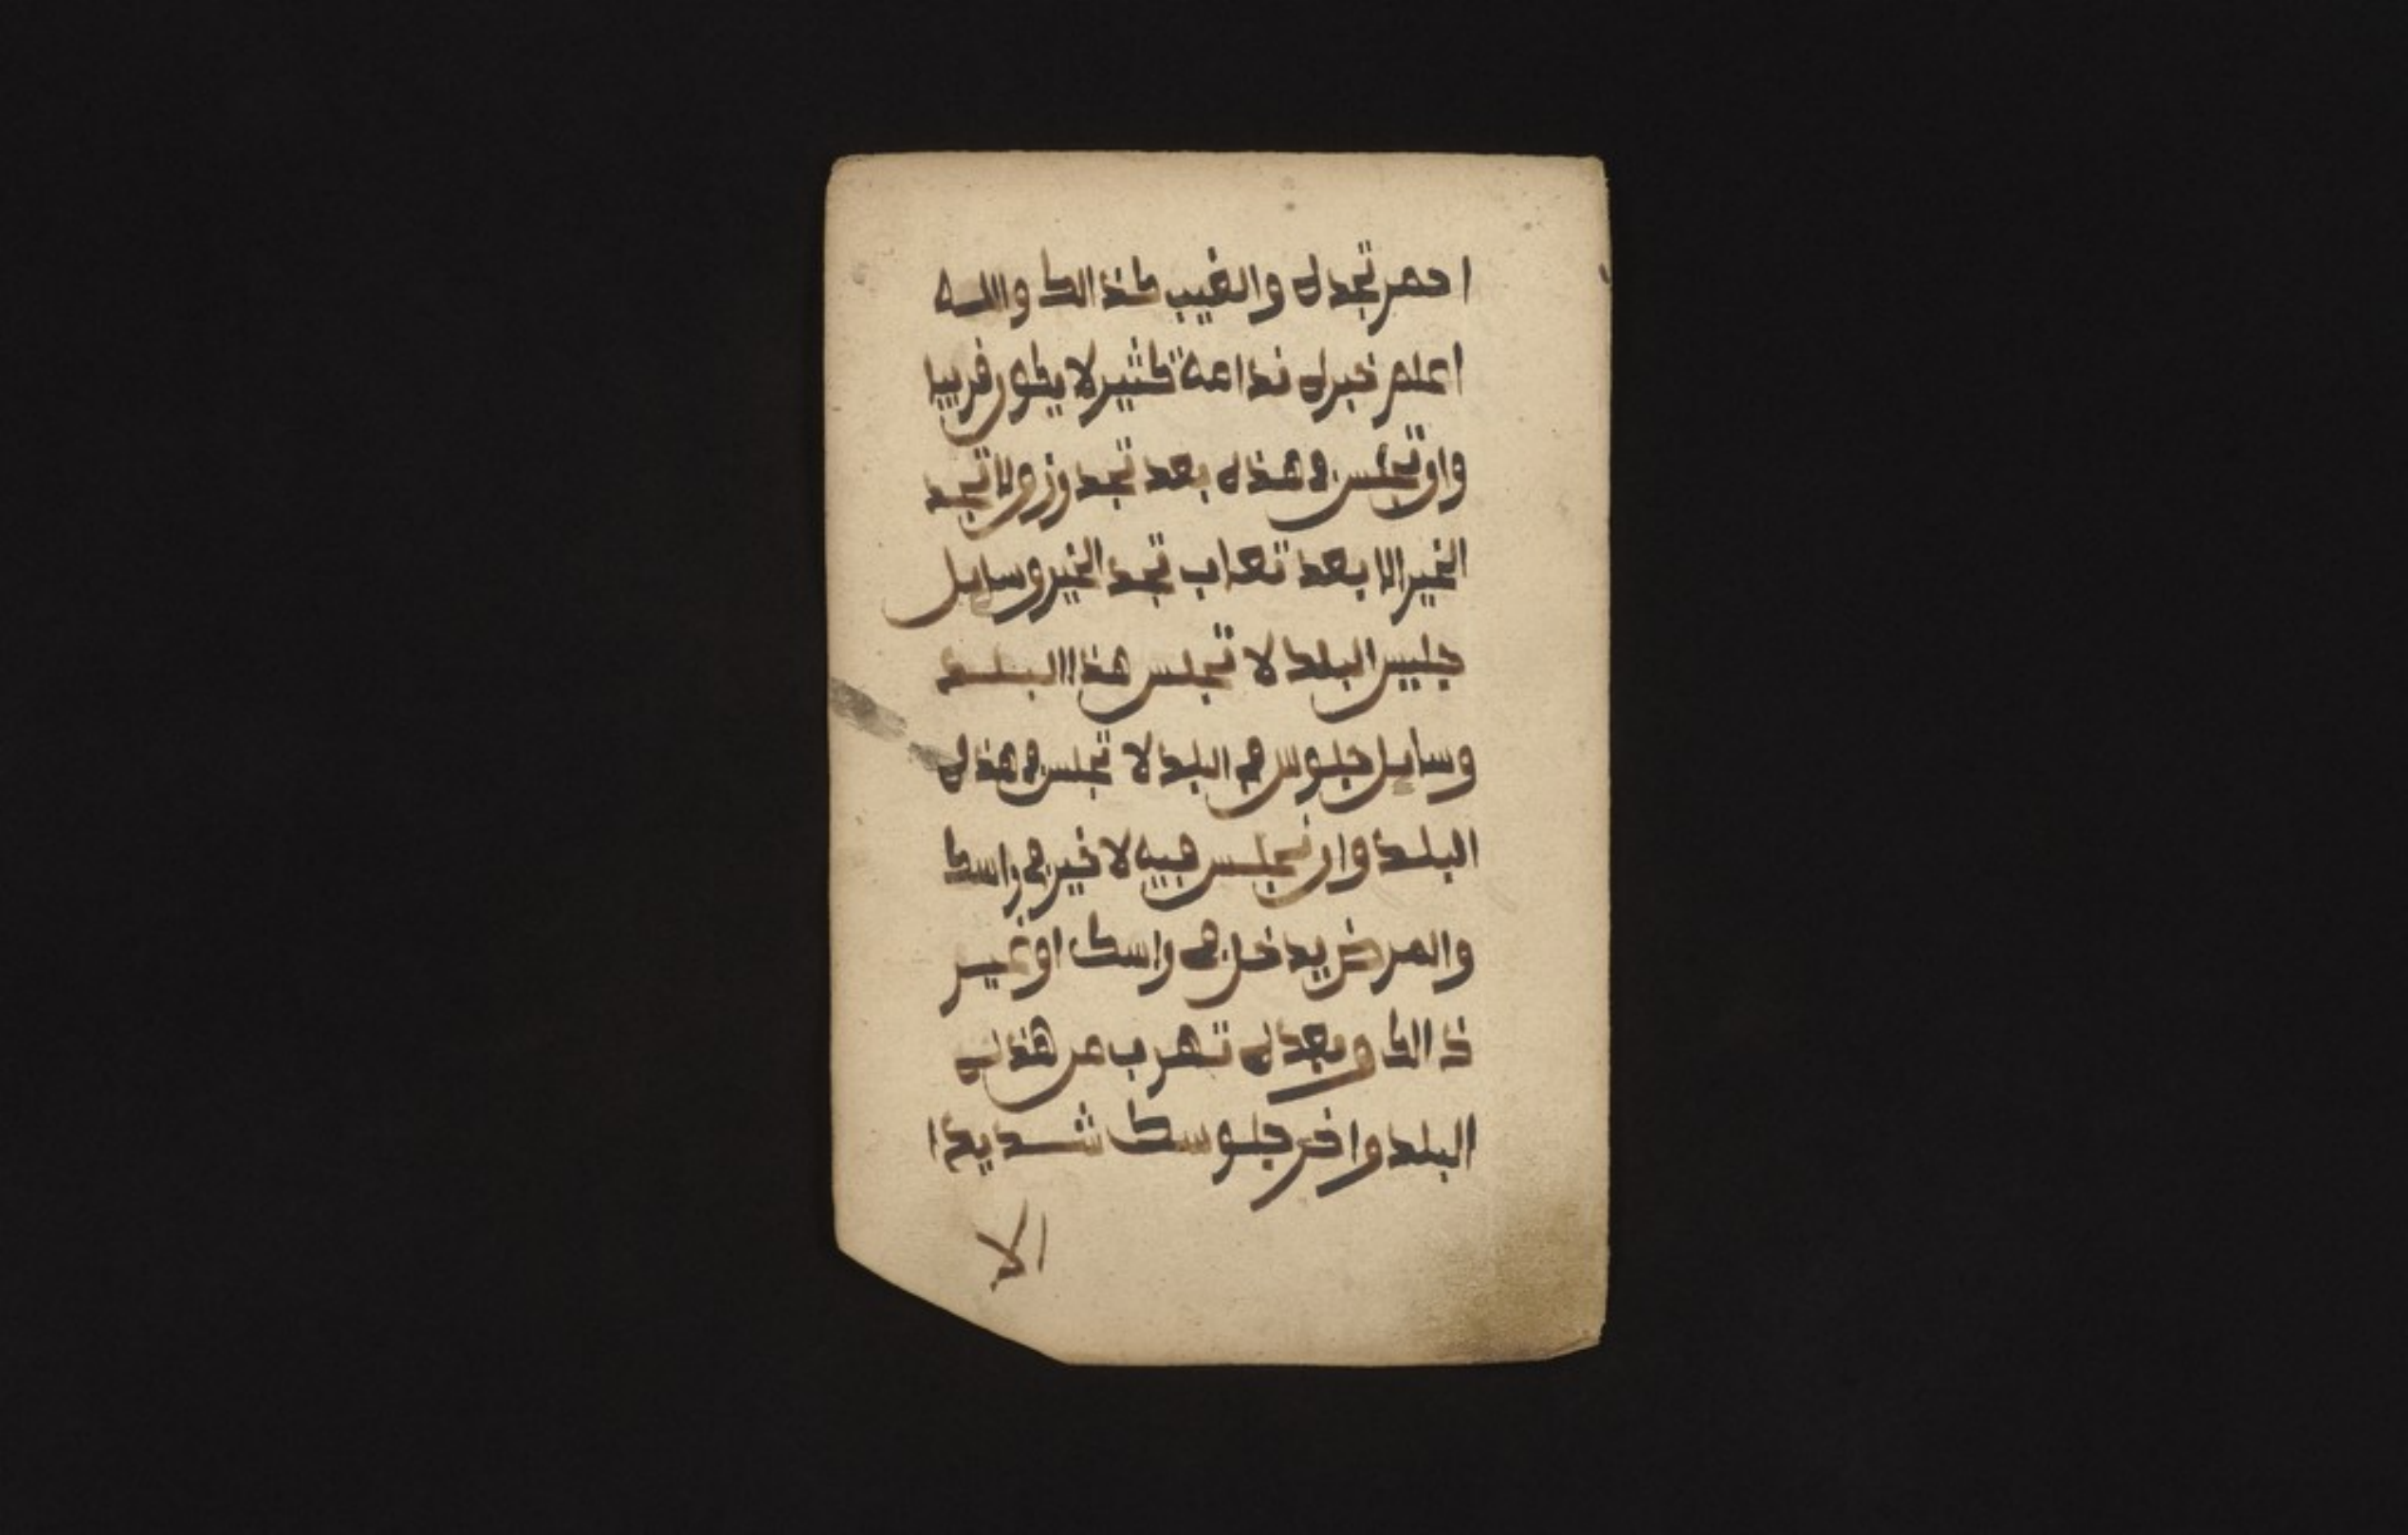 احمر تجده والغيب كذالك والله
اعلم خبره ندامة كثير لا يكون قريبا
وان تجلس في هذه بعد تجد ولا تجد
الخير الا بعد تعاب تجد الخير وسايل
جليس البلد لا تجلس هذا البلد
وسايل جلوس في البلد لا تجلس في هذه
البلد وان تجلس فيه لا خير في راسك
والمرض يدخل في راسك او غير
ذالك وبعده تهرب من هذه
البلد واخر جلوسك شديدا
الا